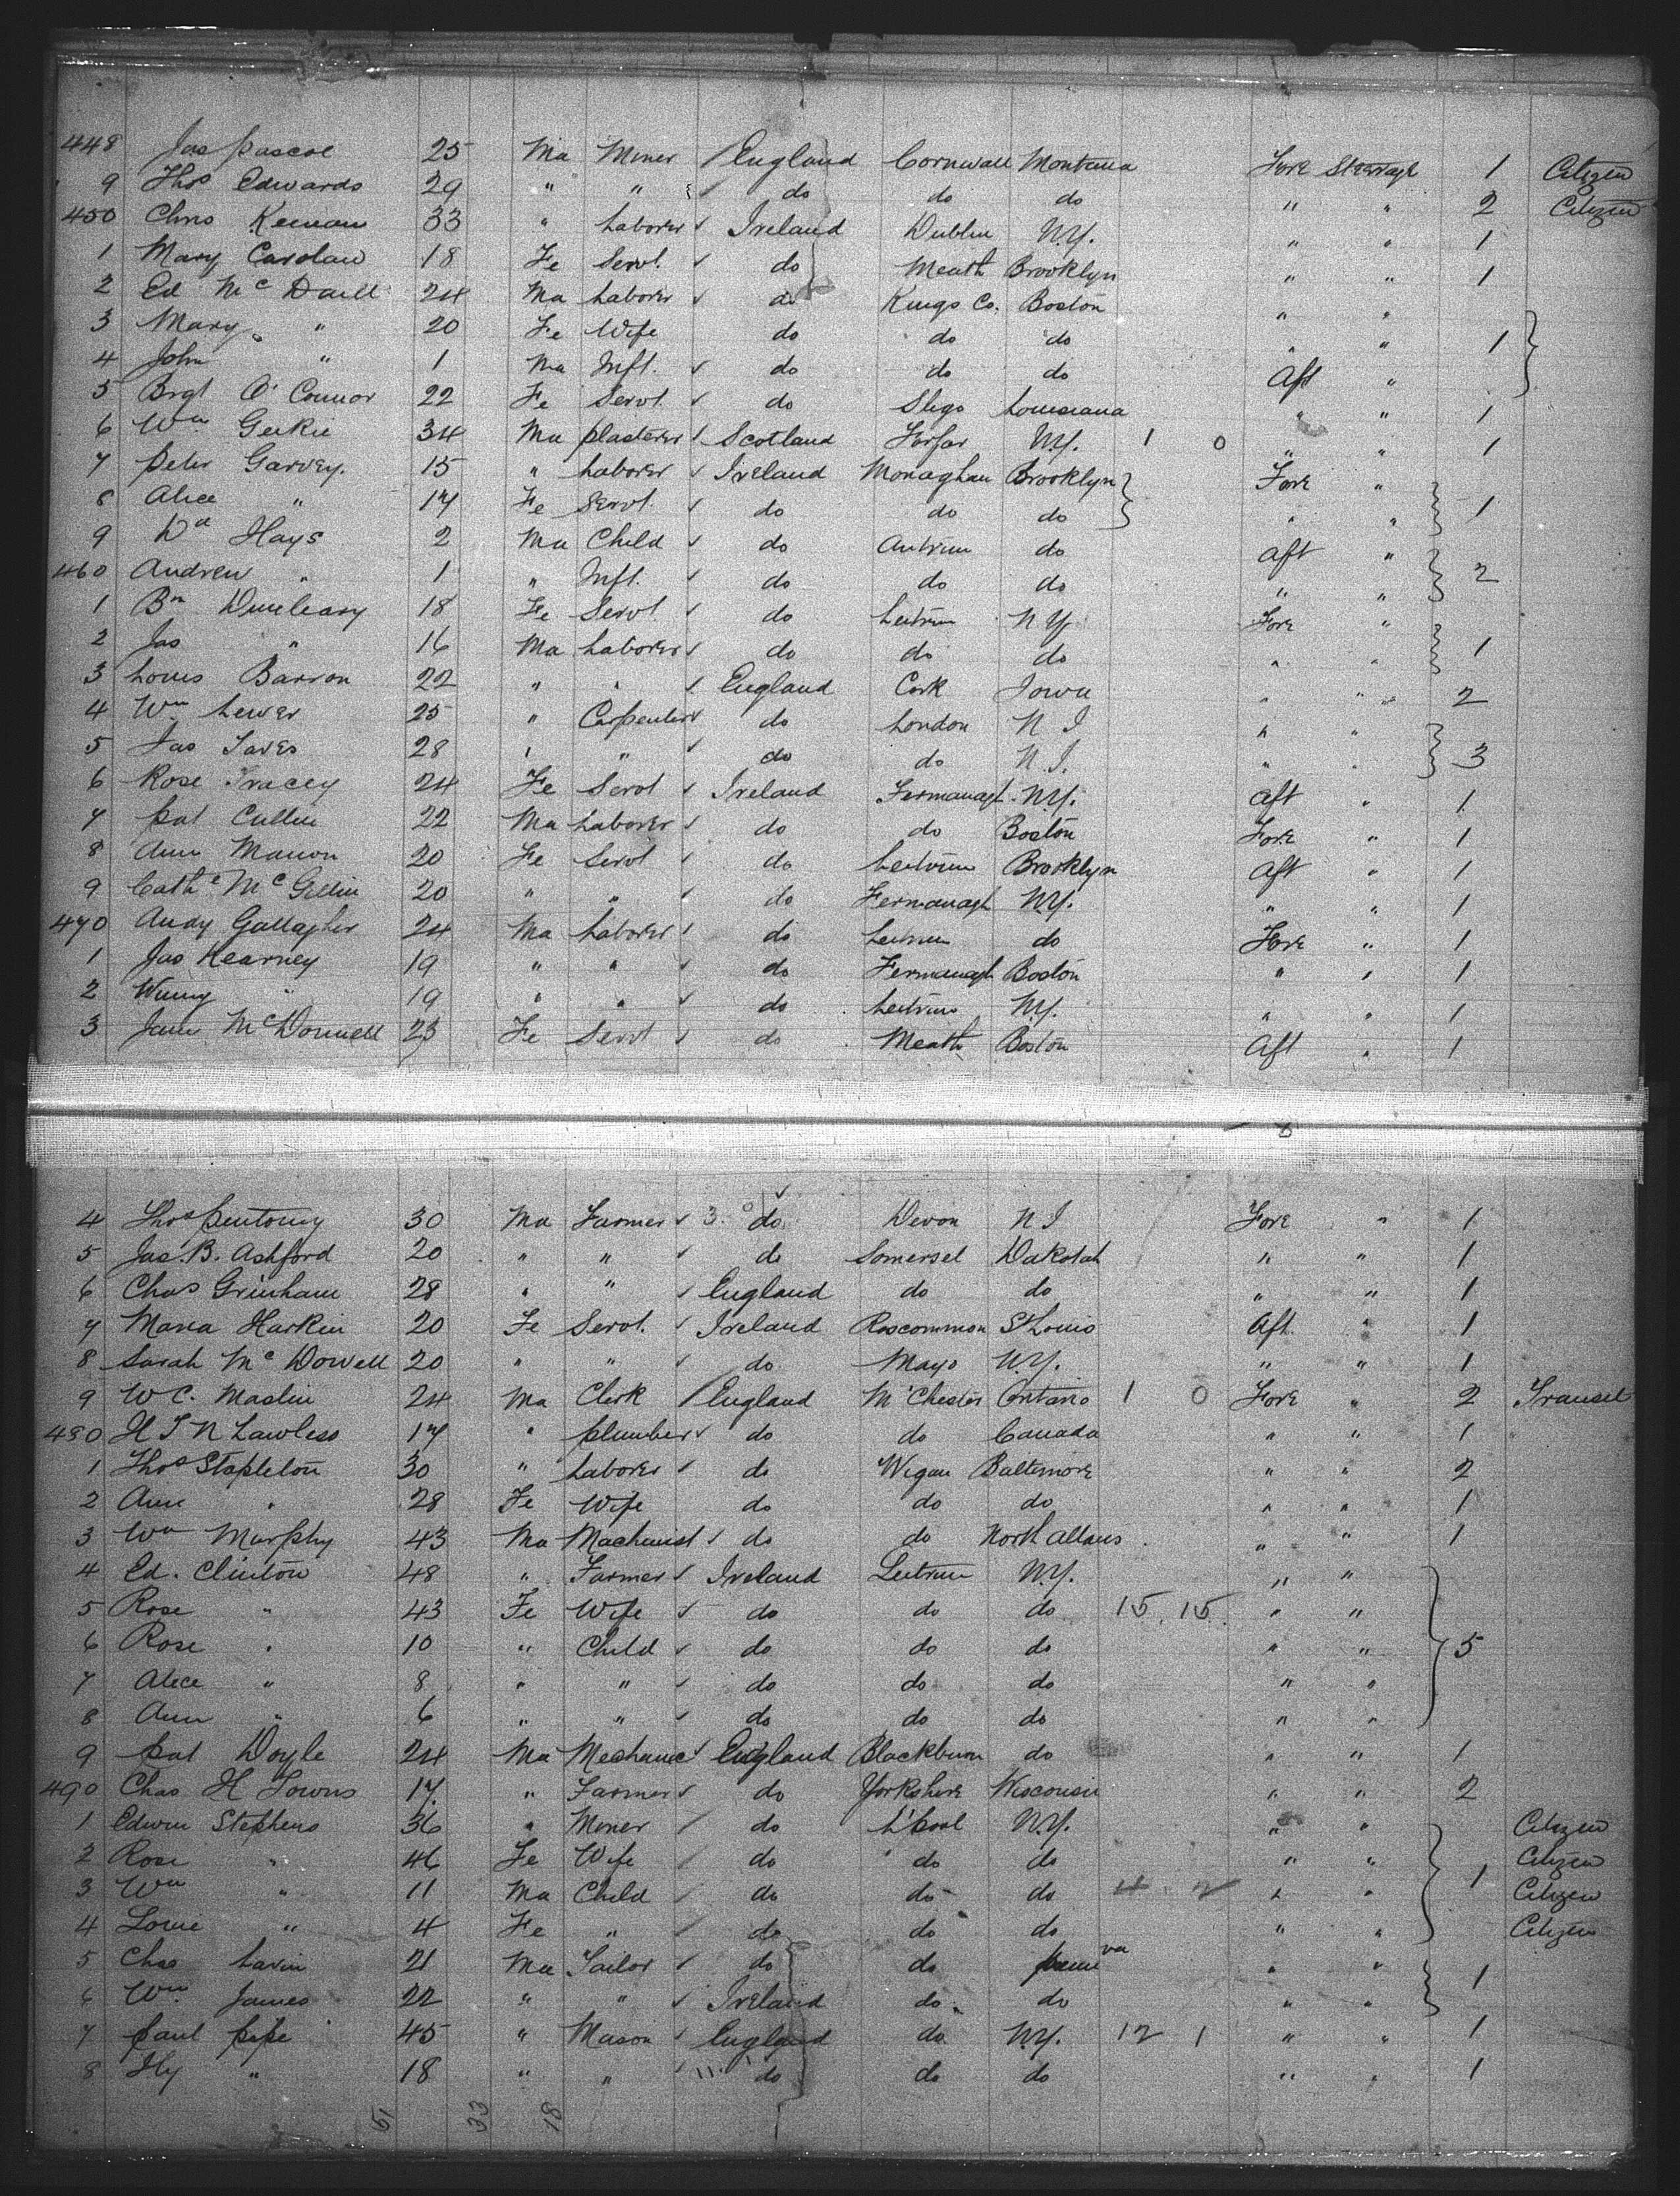 448 Jas Pascoe 25 Ma Miner England Cornwall Montana Fore Steerage 1 Citizen
9 Thos Edwards 29 " " do do do " " 2 Citizen
450 Chris Keenan 33 " Laborer Ireland Dublin N.Y. " " 1
1 Mary Carolan 18 Fe Servt. do Meath Brooklyn " " 1
2 Ed Mc 24 Ma Laborer do Kings Co. Boston " "
3 Mary " 20 Fe Wife do do do " " 1
4 John " 1 Ma Inft. do do do Aft "
5 Brgt O'Connor 22 Fe Servt. do Sligo Louisiana " " 1
6 Wm Geekie 34 Ma Plasterer Scotland Forfar N.Y. 1 0 " " 1
7 Peter Garvey. 15 " Laborer Ireland Monaghan Brooklyn Fore "
8 Alice " 17 Fe Servt. do do do " " 1
9 Wd Hays 2 Ma Child do Antrim do Aft "
460 Andrew " 1 " Inft. do do do " " 2
1 Bn Dunleavy 18 Fe Servt do Leitrim N Y Fore "
2 Jas " 16 Ma Laborer do do do " " 1
3 Louis Barron 22 " " England Cork Iowa " " 2
4 Wm Lewer 25 " Carpenter do London N J " "
5 Jas 28 " " do do N.J. " " 3
6 Rose Tracey 24 Fe Servt Ireland Fermanagh N.Y. Aft " 1
7 Pat Cullen 22 Ma Laborer do do Boston Fore " 1
8 Ann Manon 20 Fe Servt do Leitrim Brooklyn Aft " 1
9 Cathe Mc 20 " " do Fermanagh N.Y. " " 1
470 Andy Gallagher 24 Ma Laborer do Leitrim do Fore " 1
1 Jas Kearney 19 " " do Fermanagh Boston " " 1
2 Winny " 19 " " do Leitrim N.Y. " " 1
3 Jane McDonnell 23 Fe Servt do Meath Boston Aft " 1
4 Thos 30 Ma Farmer 3. do Devon N J Fore " 1
5 Jas. B. Ashford 20 " " do Somerset Dakotah " " 1
6 Chas Grinham 28 " " England do do " " 1
7 Maria Harkin 20 Fe Servt. Ireland Roscommon St Louis Aft. " 1
8 Sarah McDowell 20 " " do Mayo N.Y. " " 1
9 W C. Maslin 24 Ma Clerk England M'Chester Ontario 1 0 Fore " 2 Transit
480 H T N Lawless 17 " Plumber do do Canada " " 1
1 Thos Stapleton 30 " Laborer do Wigan Baltimore " " 2
2 Ann " 28 Fe Wife do do do " " 1
3 Wm Murphy 43 Ma Machinist do do North Adams " " 1
4 Ed. Clinton 48 " Farmer Ireland Leitrim N.Y. " "
5 Rose " 43 Fe Wife do do do 15. 15. " "
6 Rose " 10 " Child do do do " " 5
7 Alice " 8 " " do do do " "
8 Ann " 6 " " do do do " "
9 Pat Doyle 24 Ma Mechanic England Blackburn do " " 1
490 Chas H Towns 17. " Farmer do Yorkshire Wisconsin " " 2
1 Edwin Stephens 36 " Miner do L'pool N.Y. " " Citizen
2 Rose " 46 Fe Wife do do do " " Citizen
3 Wm " 11 Ma Child do do do 4 2 " " 1 Citizen
4 Louie " 4 Fe " do do do " " Citizen
5 Chas Lavin 21 Ma Tailor do do Pennva " " 1
6 Wm James 22 " " Ireland do do " "
7 Paul Pope 45 " Mason England do N.Y. 12 1 " " 1
8 Hy " 18 " " 11. do do do " " 1
51 33 18